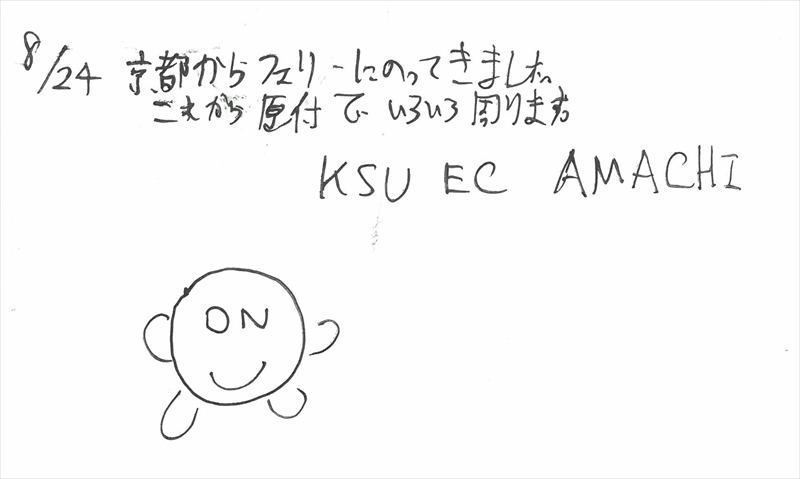 8/24 京都からフェリーにのってきました
これから原付でいろいろ周ります
KSU EC AMACHI
ON